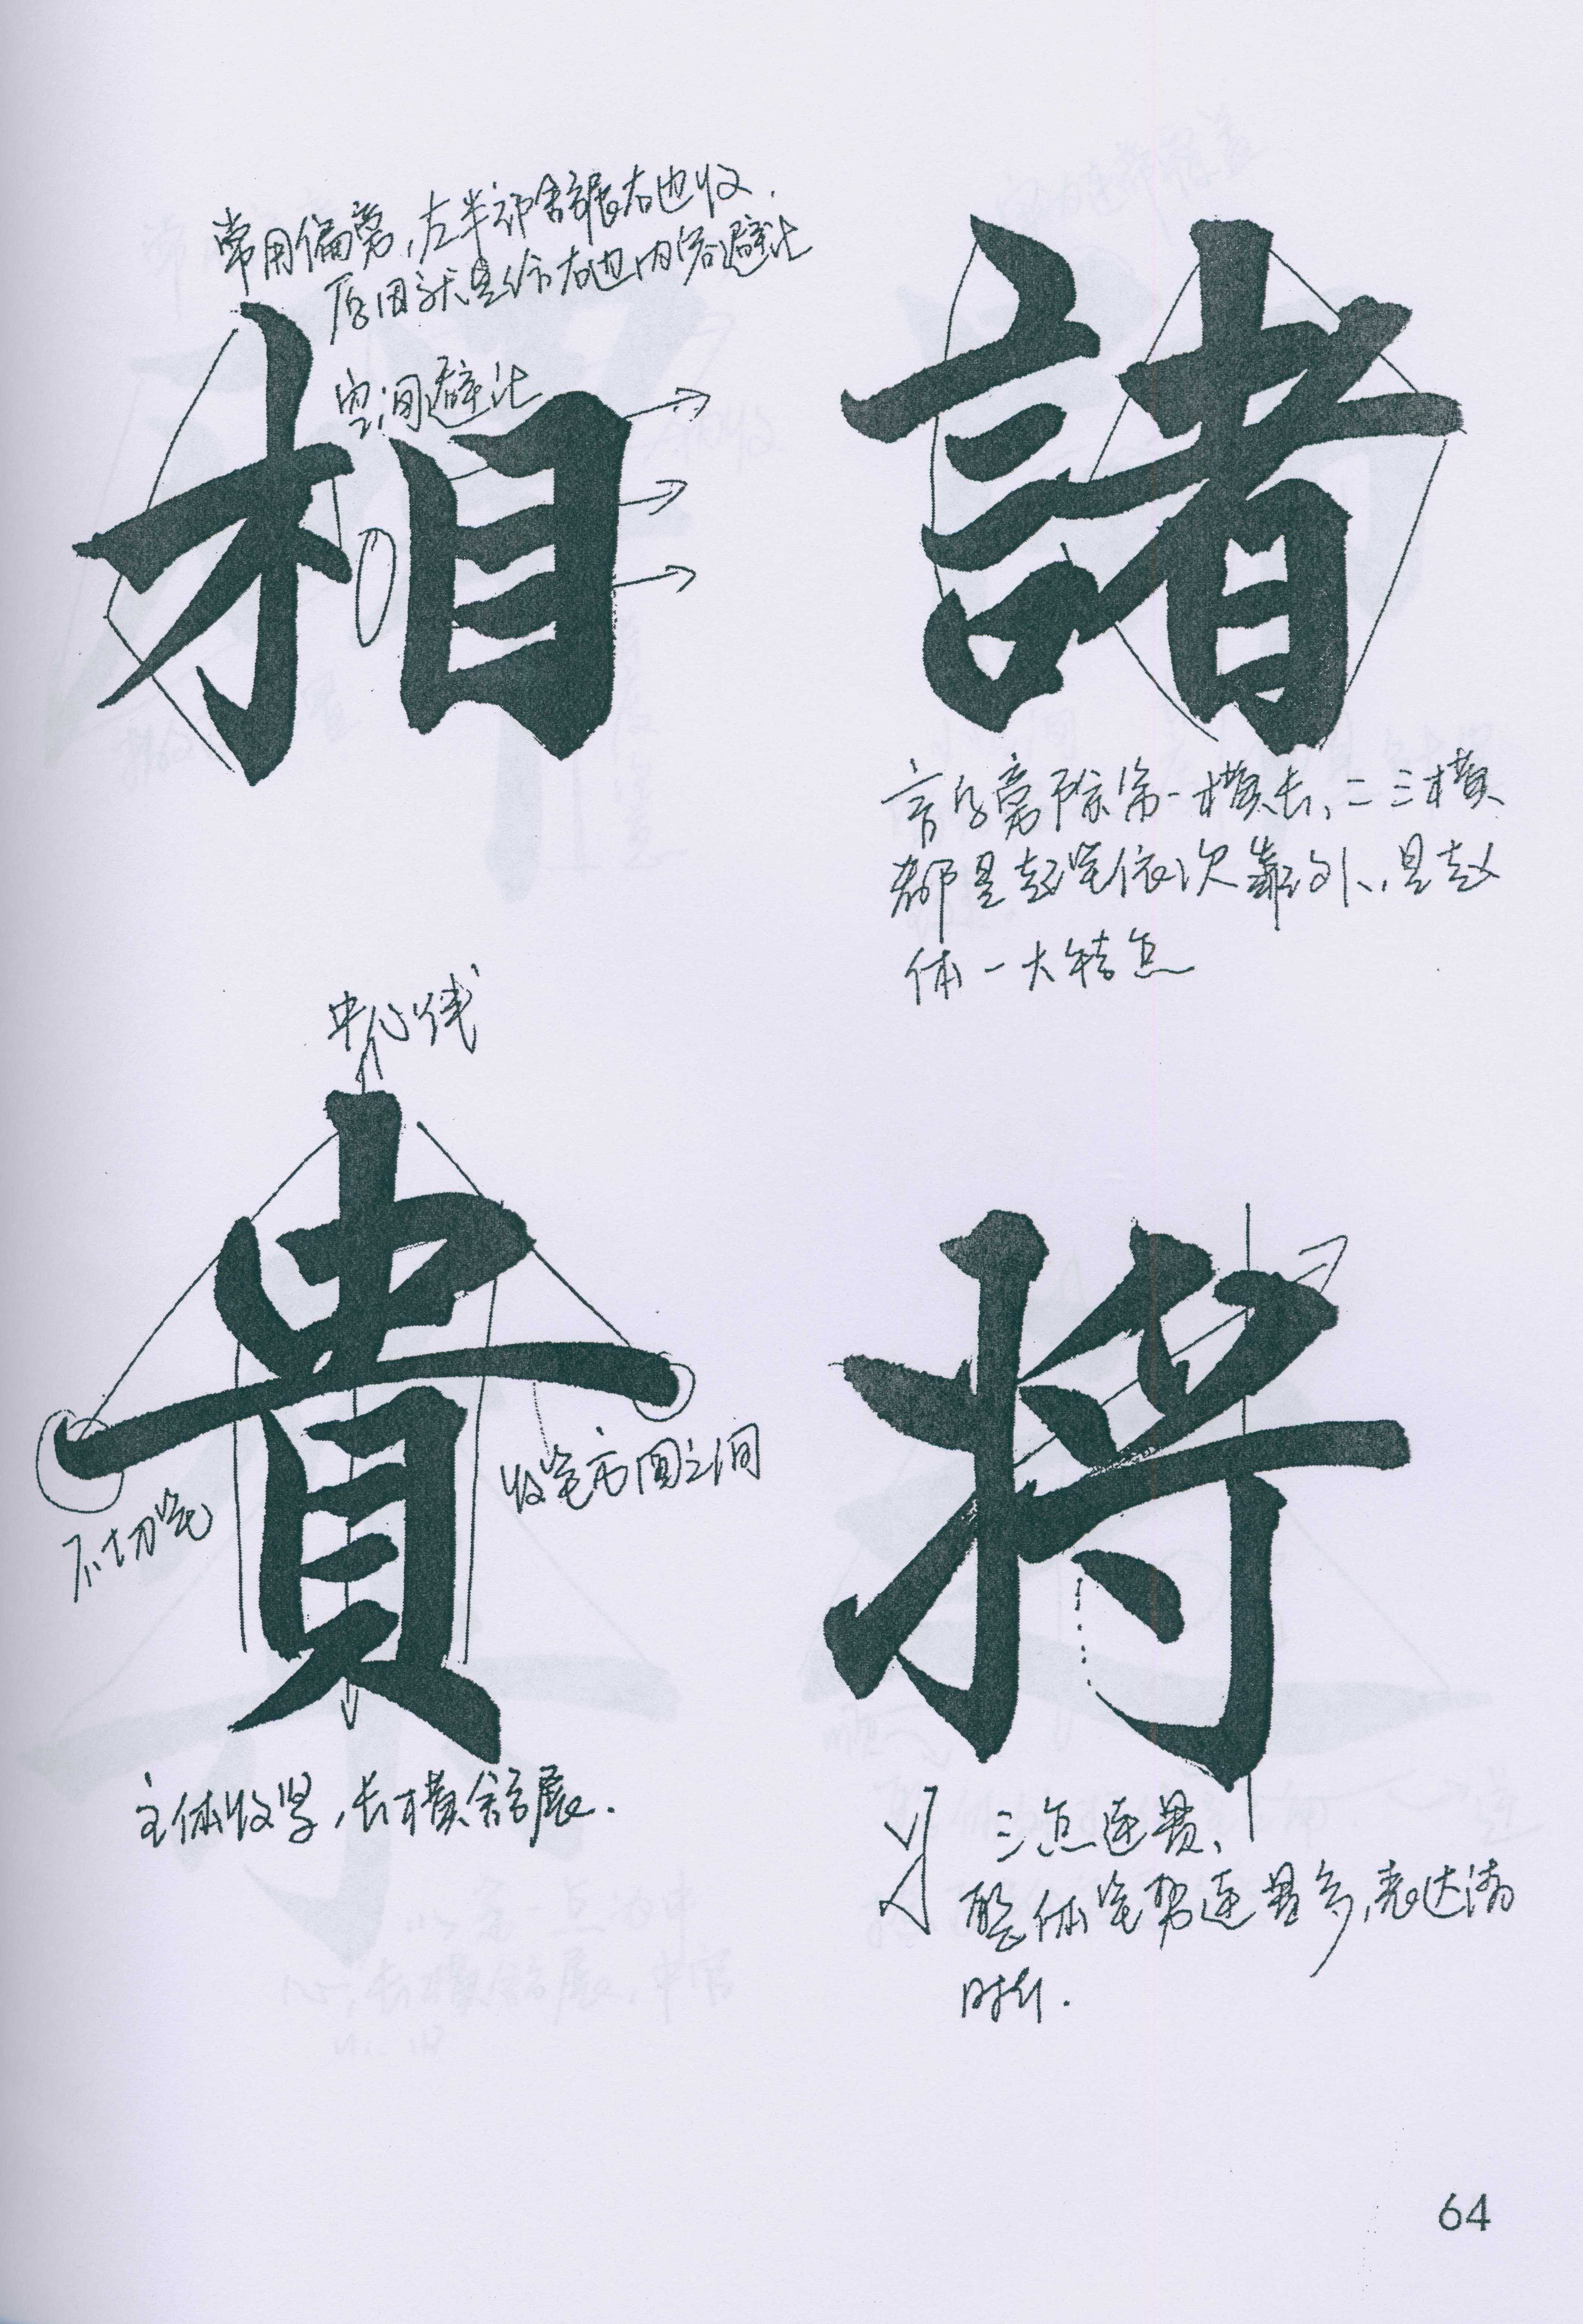 常用偏旁，左半部舒展右边收.
原因就是给右边内容避让
空间避让
相
諸
言字旁除第一横长、二三横
都是起笔依次靠外、是赵
体一大特点
中心线
貴
不切笔
收笔方圆之间
主体收紧，长横舒展.
將
三点连贯、
整体笔势连贯多，表达清
晰.
64